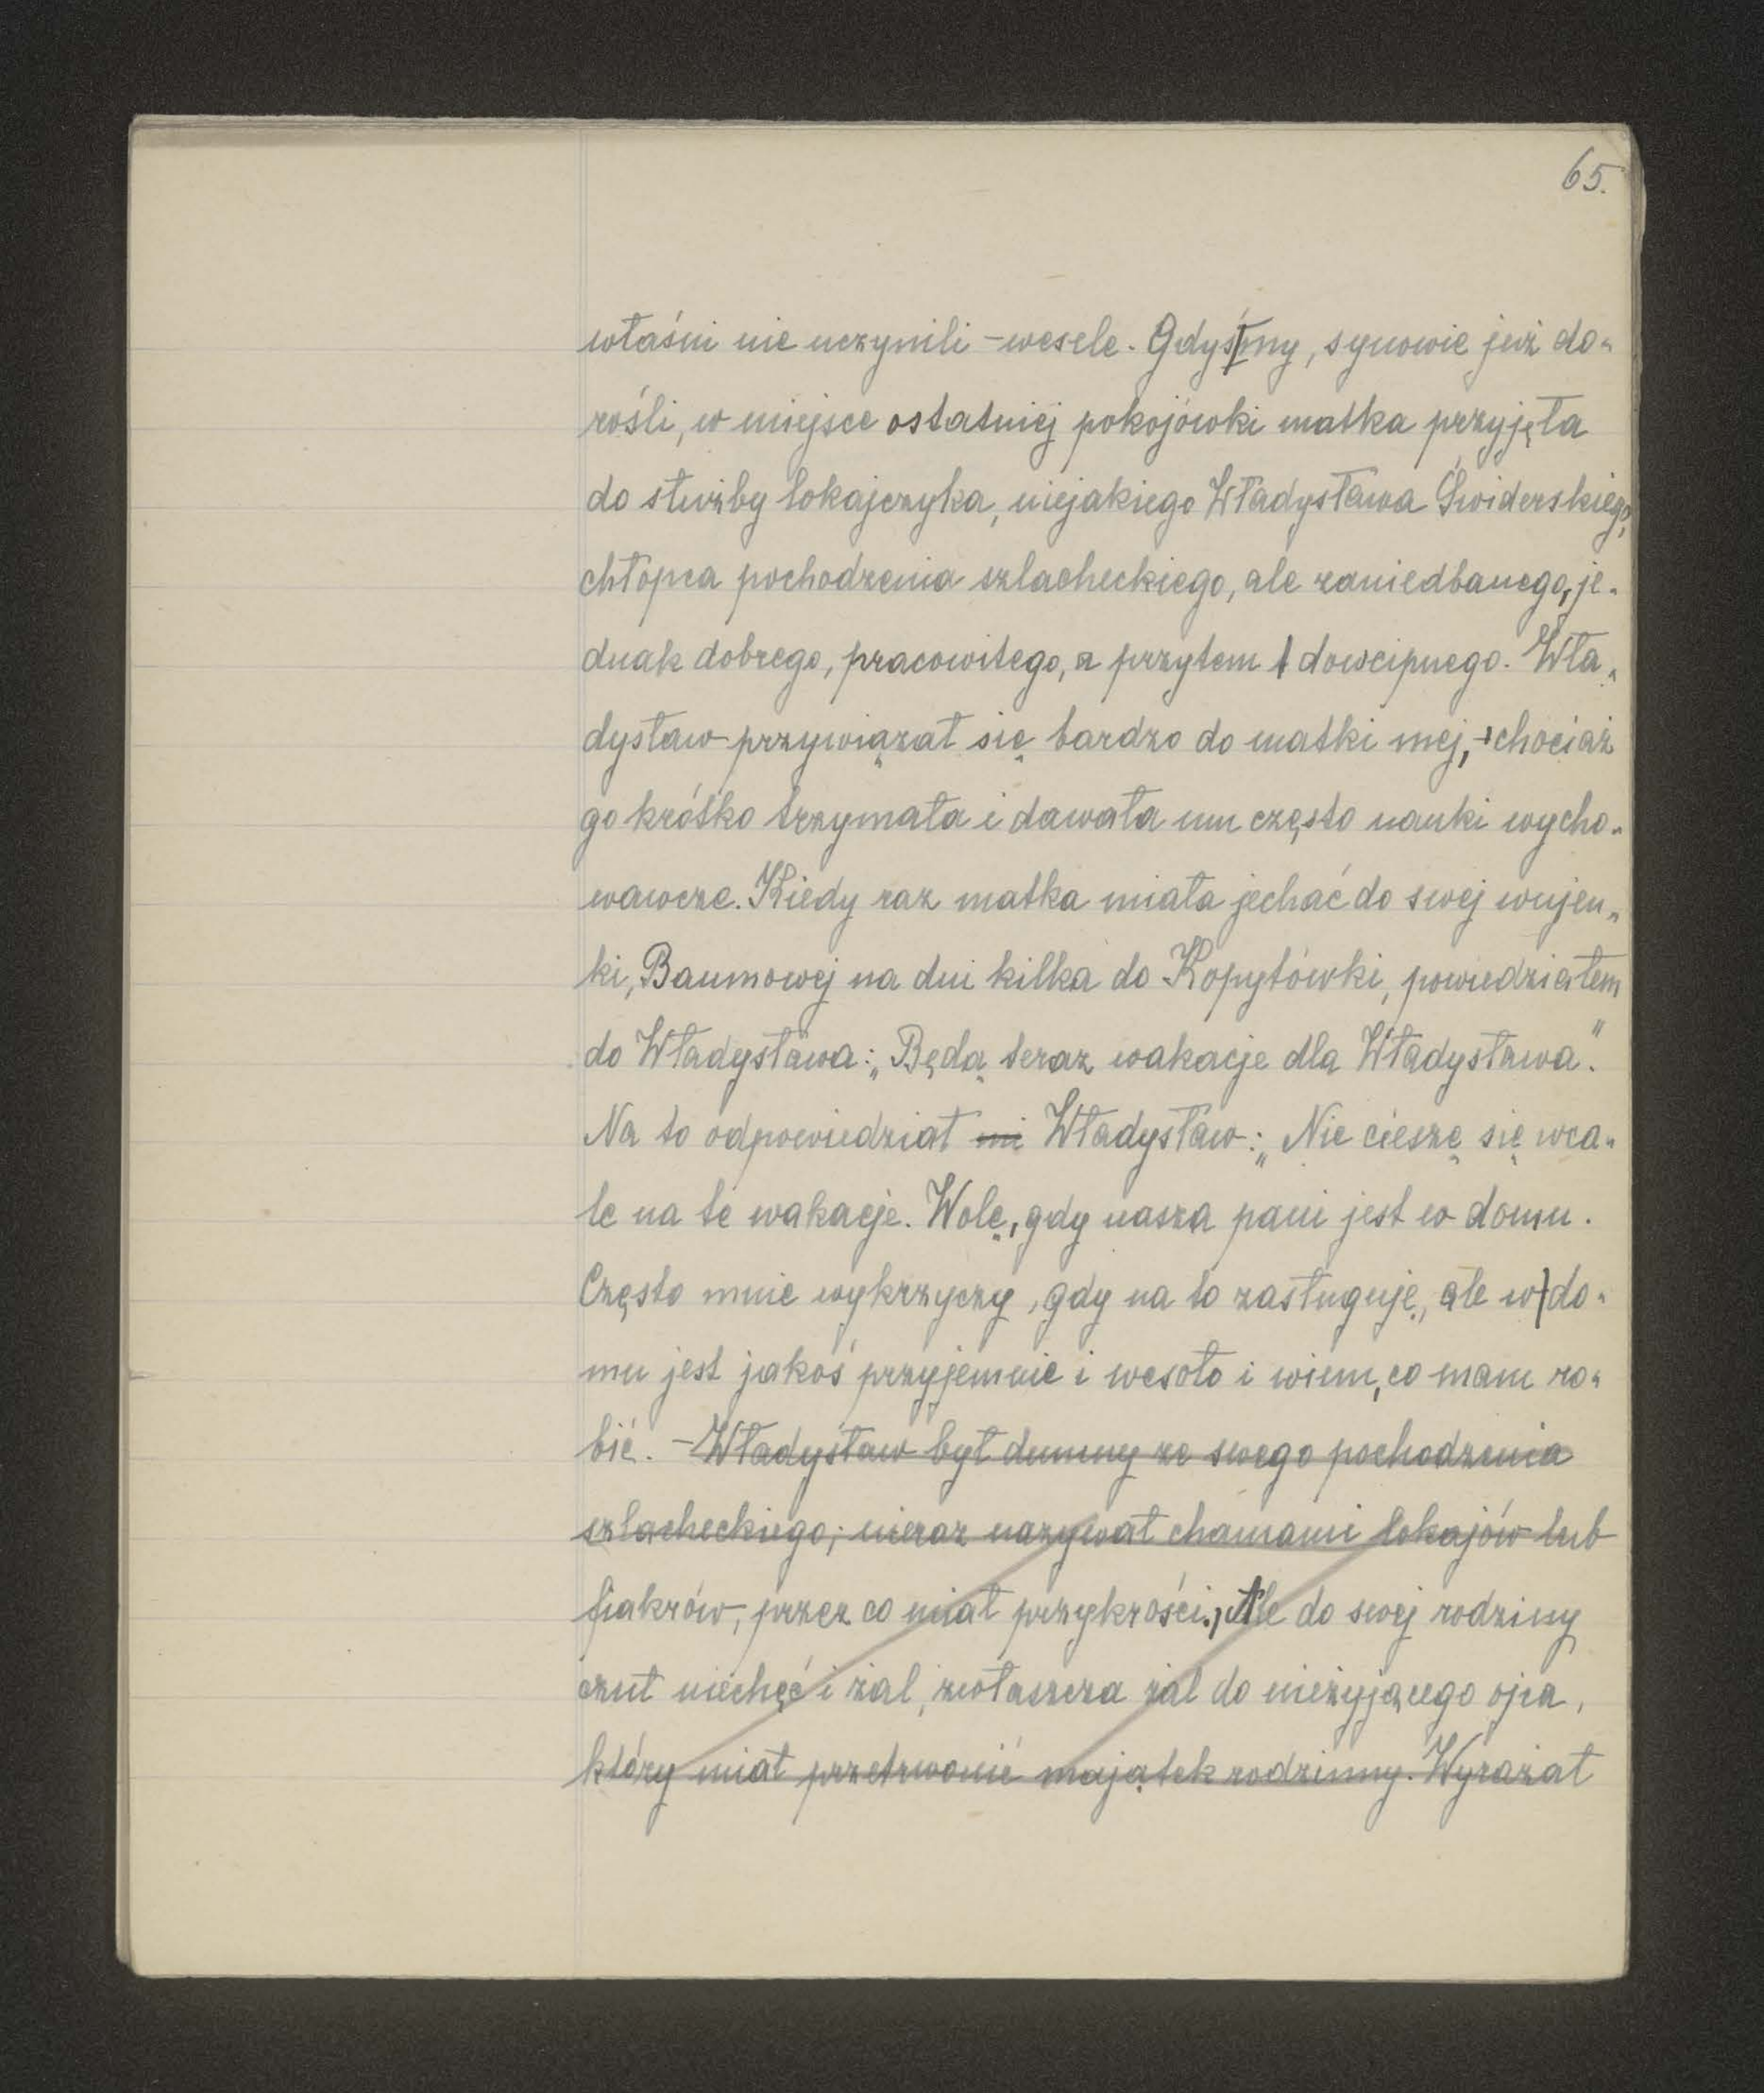 65.
właśni nie uczynili - wesele. Gdyśmy, synowie już do-
rośli, w miejsce ostatniej pokojówki matka przyjęła
do służby lokajczyka, niejakiego Władysława Świderskiego,
chłopca pochodzenia szlacheckiego, ale zaniedbanego, je-
dnak dobrego, pracowitego, a przytem dowcipnego. Wła-
dysław przywiązał się bardzo do matki mej, chociaż
go krótko trzymała i dawała mu często nauki wycho-
wawcze. Kiedy raz matka miała jechać do swej wujen-
ki, Baumowej na dni kilka do Kopytówki, powiedziałem
do Władysława: „Będą teraz wakacje dla Władysława”.
Na to odpowiedział mi Władysław: „Nie cieszę się wca-
le na te wakacje. Wolę, gdy nasza pani jest w domu.
Często mnie wykrzyczy, gdy na to zasługuję, ale w do-
mu jest jakoś przyjemnie i wesoło i wiem, co mam ro-
bić. - Władysław był dumny ze swego pochodzenia
szlacheckiego; nieraz nazywał chamami lokajów lub
fiakrów, przez co miał przykrości., Ale do swej rodziny
czuł niechęć i żal, zwłaszcza żal do nieżyjącego ojca,
który miał przetrwonić majątek rodzinny. Wyrażał